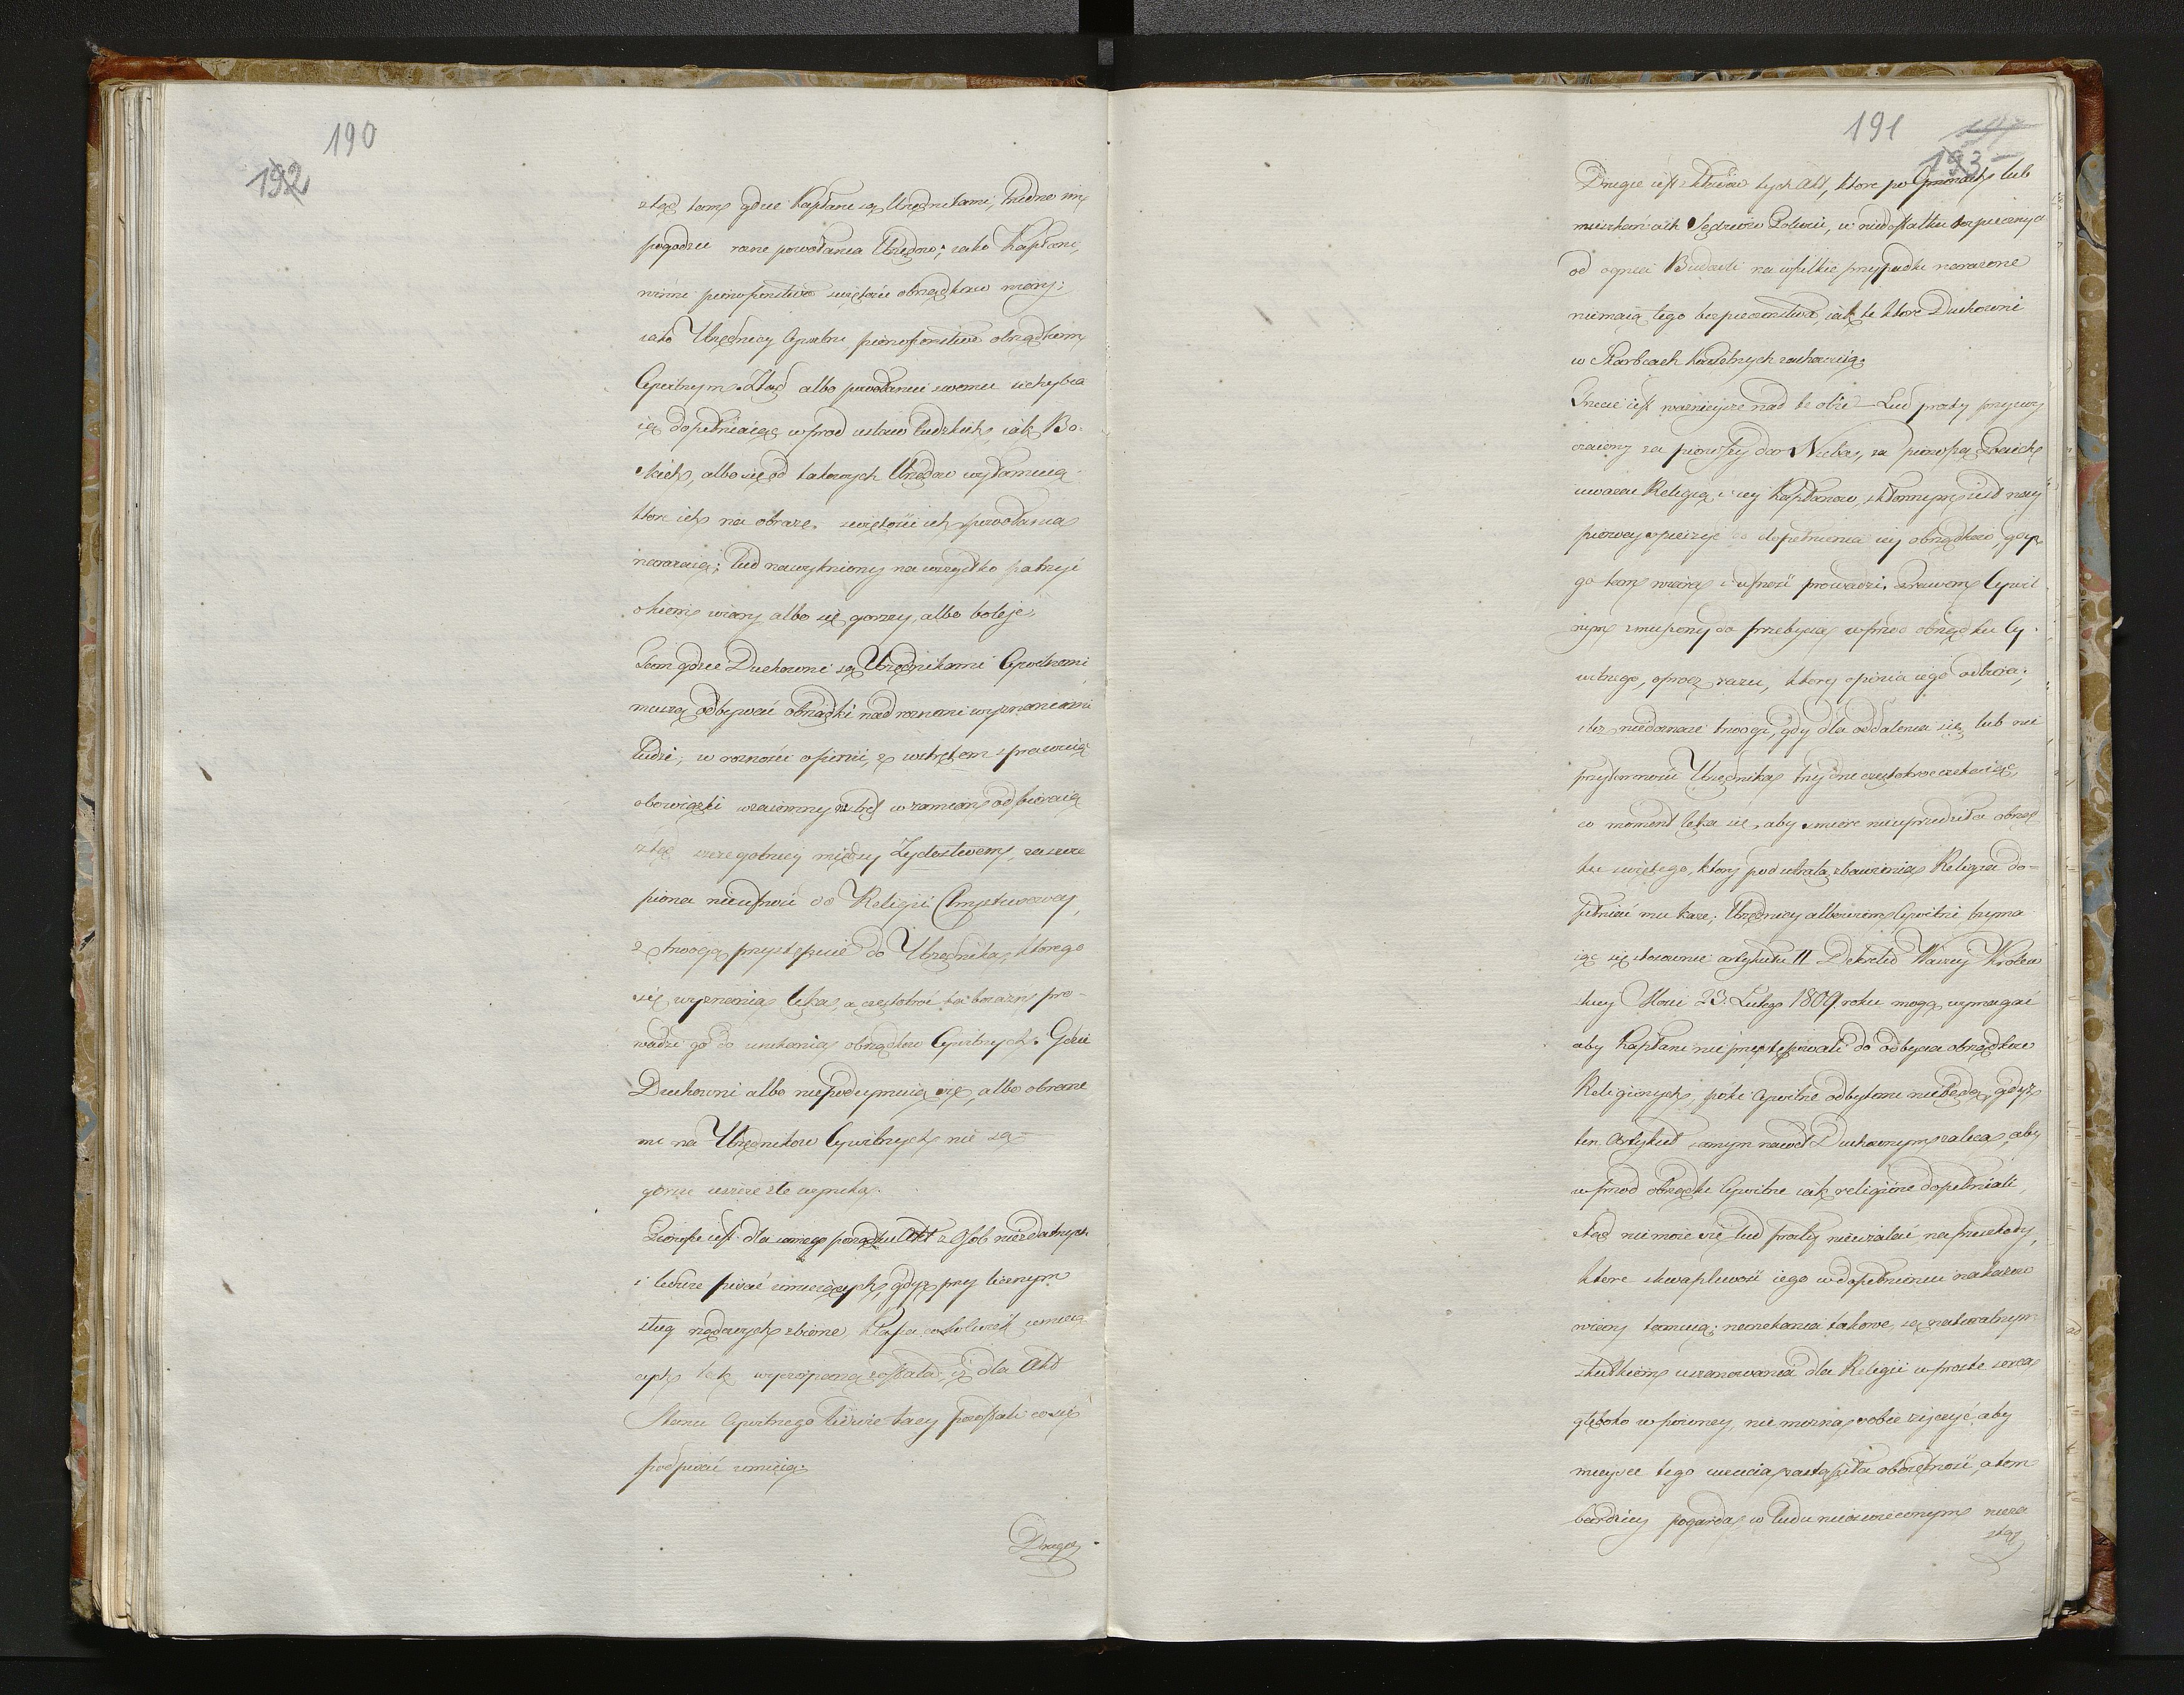 190
192
ztąd tam gdzie Kapłani są Urzędnikami, trudno im
pogodzić rożne powołania Urzędow; iako Kapłani,
winni pierwszeństwo świętości obrządkow wiary;
iako Urzędnicy Cywilni pierwszeństwo obrządkom
Cywilnym. Ztąd albo powołaniu swemu uchybia
ią dopełniaiąc wprzod ustaw ludzkich, iak Bo-
skich, albo się od takowych Urzędow wyłamuią
ktore ich na obrazę świętości ich powołania
narażaią; lud nawykniony na wszystko patrzyć
okiem wiary albo się gorszy, albo boleje.
Tam gdzie Duchowni są Urzędnikami Cywilnemi
muszą odbywać obrządki nad rożnemi wyznaniami
ludzi, w rożności opinii, z wstrętem sprawuią
obowiązki wzaiemny wstręt w zamian odbieraią
ztąd szczegolniey między Żydostwem, zaszcze
piona nieufność do Religii Chrystusowey,
z trwogą przystępuie do Urzędnika, ktorego
się wyznania lęka, a częstokroć ta boiaźń pro-
wadzi go do unikania obrządkow Cywilnych. Gdzie
Duchowni albo niepodeymuią się, albo obrane
mi na Urzędnikow Cywilnych nie są
gorsze ieszcze złe wynika.
Pierwsze iest dla samego porządku Akt z Osob niezdatnych
i ledwie pisać umieiących, gdyż przy licznym
sług rządowych zbiorze, klassa cokolwiek umieią
cych tak wyczerpaną została, iż dla Akt
Stanu Cywilnego ledwie tacy pozostali co się
podpisać umieią.
Drugie
191
193
Drugie iest zktadow tych Akt, ktore po Gminach lub
mieszkaniach Sędziow Pokoiu, w niedostatku bezpiecznych
od ognia Budowli na wszelkie przypadki narażone
niemaią tego bezpieczeństwa, iak te ktore Duchowni
w Skarbcach Kościelnych zachowuią.
Trzecie iest ważnieysze nad te obie — Lud prosty przyzwy
czaiony za pierwszy dar Nieba, za pierwszą pociechę
uważać Religią i iey Kapłanow, skłonnym iest nay
pierwey spieszyć do dopełnienia iey obrządkow, gdyż
go tam wiara i ufność prowadzi. Prawem Cywil
nym zmuszony do przebycia wprzod obrządku Cy-
wilnego, oprocz razu, ktory opinia iego odbiera,
i bez niedoznaie trwogi, gdy dla oddalenia się lub nie
przytomności Urzędnika trzy dni częstokroć czekaiąc,
co moment lęka się, aby śmierć nieuprzedziła obrząd
ku świętego, ktory pod utratą zbawienia Religia do-
pełniać mu każe; Urzędnicy albowiem Cywilni trzyma
iąc się stosownie artykułu II Dekretu Waszey Krolew
skiey Mości 23. Lutego 1809 roku mogą wymagać
aby Kapłani nieprzystępowali do odbycia obrządkow
Religiinych, poki Cywilne odbytemi niebędą, gdyż
ten Artykuł samym nawet Duchownym zaleca, aby
wprzod obrządki Cywilne iak religiine dopełniali,
ztąd niemoże się lud prosty nieużalać na przeszkody,
ktore skwapliwość iego w dopełnieniu nakazow
wiary tamuią; narzekania takowe są naturalnym
skutkiem uszanowania dla Religii w proste serca
głęboko wpoioney, nie można sobie życzyć aby
mieysce tego uczucia zastąpiła oboiętność, a tem
bardziey pogarda w ludu nieoświeconym nieza
ztąd